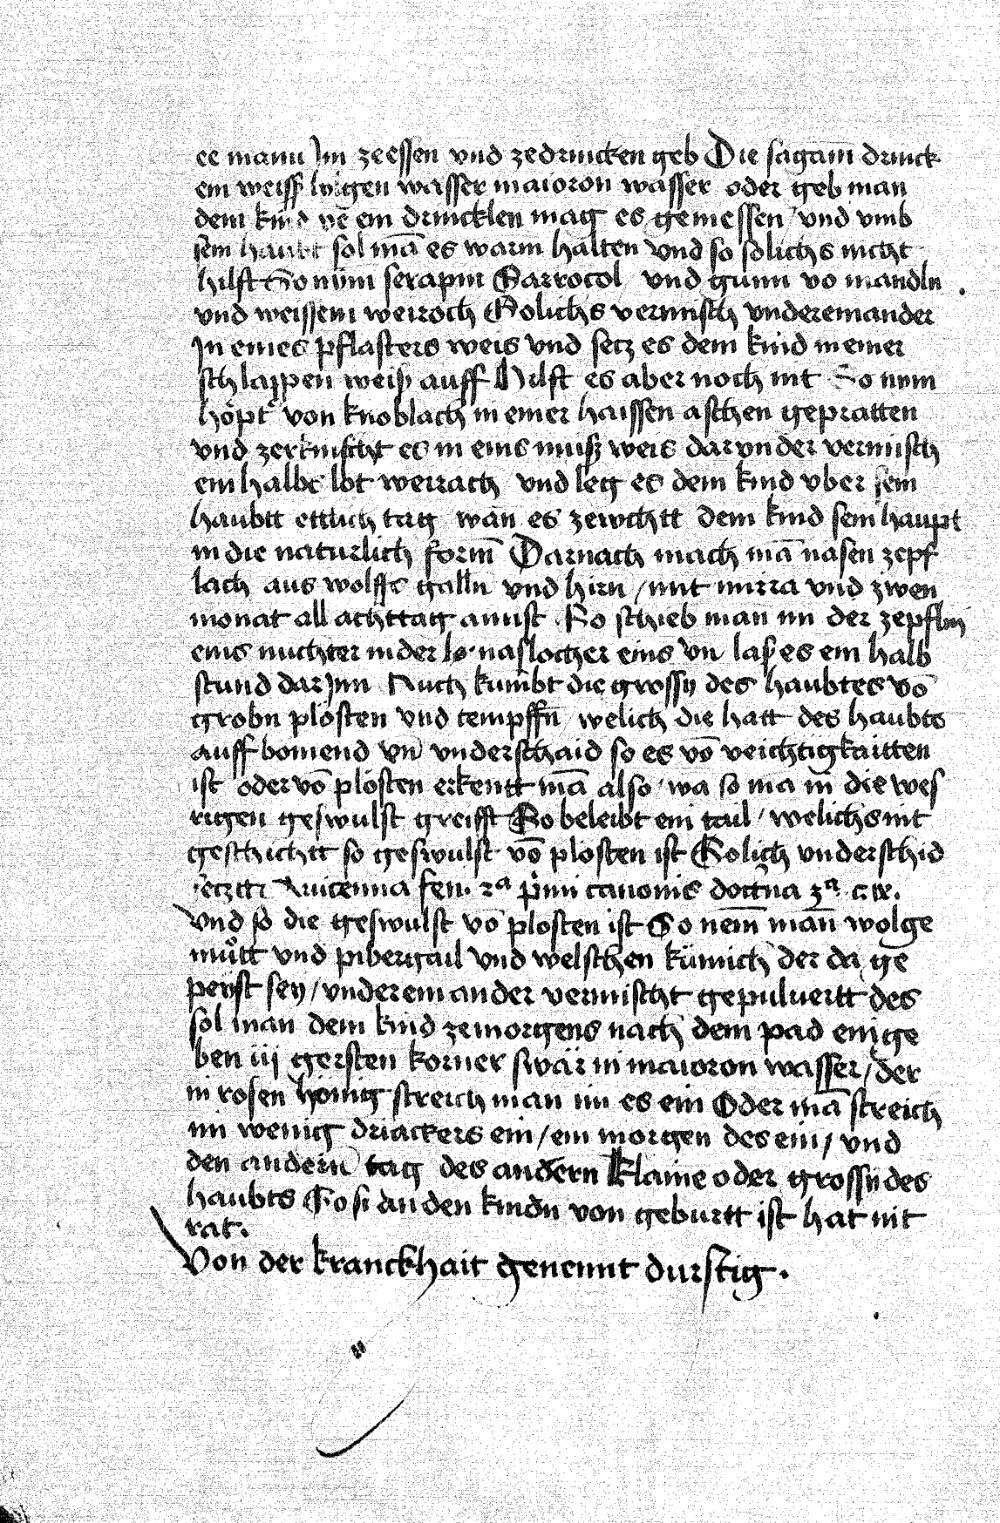 ee mann Im zeessen vnd zedrincken geb Die sagam drinck
ein weiss lylgen wasser maioron wasser oder geb man
dem kind ye ein drincklen mag es geniessen / vnd vmb
sein haubt sol mā es warm halten vnd so solichs nicht
hilft So nim serapin Sarrocol vnd gumi vo mandln
vnd weissem weiroch Solichs vermisch vndereinander
In eines pflasters weis vnd secz es dem kind in einer
schlappen weiß auff Hilft es aber noch nit So nym
höpt von knoblach in einer haissen aschen gepratten
vnd zerknischt es in eins muß weis dar vnder vermisch
ein halbs lot weirrach vnd leg es dem kind vber sein
haubtt ettlich tag wan es zewchtt dem kind sein haupt
in die naturlich form Darnach mach mā nasen zepf
lach aus wolffs galln vnd hirn / mit mirra vnd zwen
monat all achttag ainist So schieb man im der zepflin
eins nuchter in der naslocher eins vn laß es ein halb
stund dar Jnn Auch kumbt die grossy des haubtes vō
grobn plösten vnd tempffn / welich die hatt des haubts
auff bomend vn vnderschaid so es vō veichtigkaitten
ist oder vō plösten erkentt mā also / wa so ma in die wes
rigen geswulst greifft So beleibt ein tail / welichs nit
geschichtt so geswulst vō plosten ist Solich vnderschid
seczt Auicenna fen. 2ᵃ primi canonis doctrina 3ᵃ. c. ix.
Vnd so die geswulst vō plosten ist So nem man wolge
mutt vnd pibergail vnd welschen kümich der da ge
peyst sey / vnder ein an der vermischt gepuluertt des
sol man dem kind zemorgens nach dem pad ein ge
ben iij gersten korner swär in maioron wasser / der
in rosen honig streich man im es ein Oder mā streich
im wenig driackers ein / ein morgen des ein / vnd
den andern tag des andern Klaine oder grossy des
haubts So si an den kindn von geburtt ist hat nit
rat.
Von der kranckhait genennt durstig.